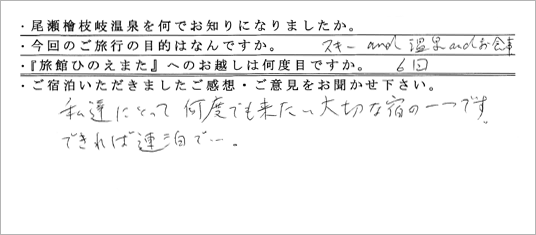 ・尾瀬檜枝岐温泉を何でお知りになりましたか。
・今回のご旅行の目的はなんですか。 スキー and 温泉 and お食事
・『旅館ひのえまた』へのお越しは何度目ですか。 6回
・ご宿泊いただきましたご感想・ご意見をお聞かせ下さい。
私達にとって何度でも来たい大切な宿の一つです。
できれば連泊で…。